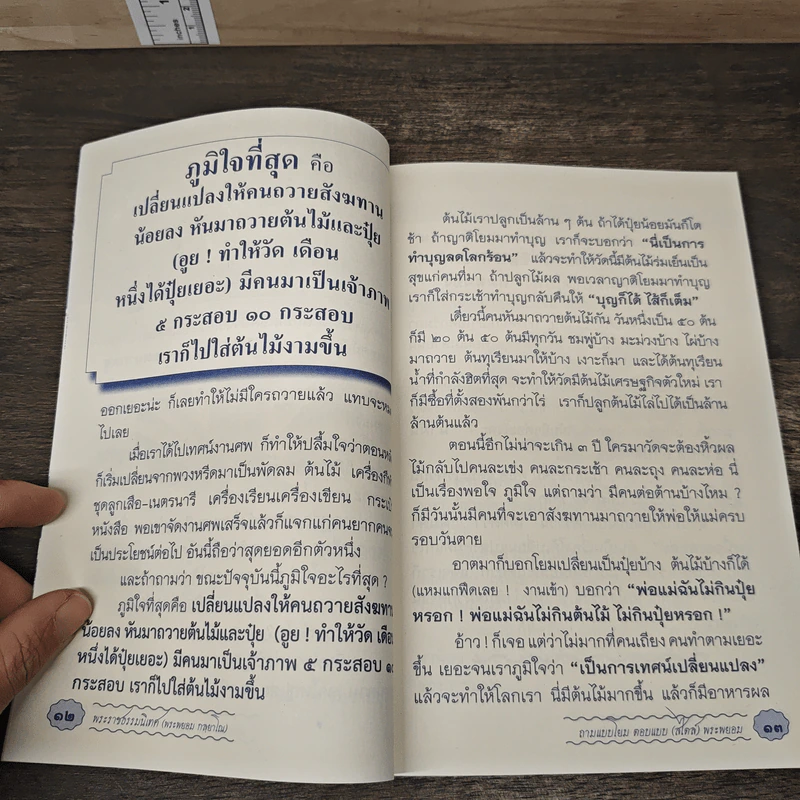 ภูมิใจที่สุด คือ
เปลี่ยนแปลงให้คนถวายสังฆทาน
น้อยลง หันมาถวายต้นไม้และปุ๋ย
(อูย ! ทำให้วัด เดือน
หนึ่งได้ปุ๋ยเยอะ) มีคนมาเป็นเจ้าภาพ
๕ กระสอบ ๑๐ กระสอบ
เราก็ไปใส่ต้นไม้งามขึ้น
ออกเยอะน่ะ ก็เลยทำให้ไม่มีใครถวายแล้ว แทบจะ
ไปเลย
เมื่อเราได้ไปเทศน์งานศพ ก็ทำให้ปลื้มใจว่าตอน
ก็เริ่มเปลี่ยนจากพวงหรีดมาเป็นพัดลม ต้นไม้
ชุดลูกเสือ-เนตรนารี เครื่องเรียนเครื่องเขียน
หนังสือ พอเขาจัดงานศพเสร็จแล้วก็แจกแก่คนยากคน
เป็นประโยชน์ต่อไป อันนี้ถือว่าสุดยอดอีกตัวหนึ่ง
และถ้าถามว่า ขณะปัจจุบันนี้ภูมิใจอะไรที่สุด ?
ภูมิใจที่สุดคือ เปลี่ยนแปลงให้คนถวายสังฆทาน
น้อยลง หันมาถวายต้นไม้และปุ๋ย (อูย ! ทำให้วัด เดือน
หนึ่งได้ปุ๋ยเยอะ) มีคนมาเป็นเจ้าภาพ ๕ กระสอบ ๑๐
กระสอบ เราก็ไปใส่ต้นไม้งามขึ้น
๑๒ พระราชธรรมนิเทศ (พระพยอม กลฺยาโณ)
ต้นไม้เราปลูกเป็นล้าน ๆ ต้น ถ้าได้ปุ๋ยน้อยมันก็โต
ช้า ถ้าญาติโยมมาทำบุญ เราก็จะบอกว่า “นี่เป็นการ
ทำบุญลดโลกร้อน” แล้วจะทำให้วัดนี้มีต้นไม้ร่มเย็นเป็น
สุขแก่คนที่มา ถ้าปลูกไม้ผล พอเวลาญาติโยมมาทำบุญ
เราก็ใส่กระเช้าทำบุญกลับคืนให้ “บุญก็ได้ ไส้ก็เต็ม”
เดี๋ยวนี้คนหันมาถวายต้นไม้กัน วันหนึ่งเป็น ๕๐ ต้น
ก็มี ๒๐ ต้น ๕๐ ต้นมีทุกวัน ชมพู่บ้าง มะม่วงบ้าง ไผ่บ้าง
มาถวาย ต้นทุเรียนมาให้บ้าง เงาะก็มา และได้ต้นทุเรียน
น้ำที่กำลังฮิตที่สุด จะทำให้วัดมีต้นไม้เศรษฐกิจตัวใหม่ เรา
ก็มีซื้อที่ตั้งสองพันกว่าไร่ เราก็ปลูกต้นไม้ไล่ไปได้เป็นล้าน
ล้านต้นแล้ว
ตอนนี้อีกไม่น่าจะเกิน ๓ ปี ใครมาวัดจะต้องหิ้วผล
ไม้กลับไปคนละเข่ง คนละกระเช้า คนละถุง คนละห่อ นี่
เป็นเรื่องพอใจ ภูมิใจ แต่ถามว่า มีคนต่อต้านบ้างไหม ?
ก็มีวันนั้นมีคนที่จะเอาสังฆทานมาถวายให้พ่อให้แม่ครบ
รอบวันตาย
อาตมาก็บอกโยมเปลี่ยนเป็นปุ๋ยบ้าง ต้นไม้บ้างก็ได้
(แหมแกฟืดเลย ! งานเข้า) บอกว่า “พ่อแม่ฉันไม่กินปุ๋ย
หรอก ! พ่อแม่ฉันไม่กินต้นไม้ ไม่กินปุ๋ยหรอก !”
อ้าว ! ก็เจอ แต่ว่าไม่มากที่คนเถียง คนทำตามเยอะ
ขึ้น เยอะจนเราภูมิใจว่า “เป็นการเทศน์เปลี่ยนแปลง”
แล้วจะทำให้โลกเรา นี่มีต้นไม้มากขึ้น แล้วก็มีอาหารผล
ถามแบบโยม ตอบแบบ (สไตล์) พระพยอม ๑๓